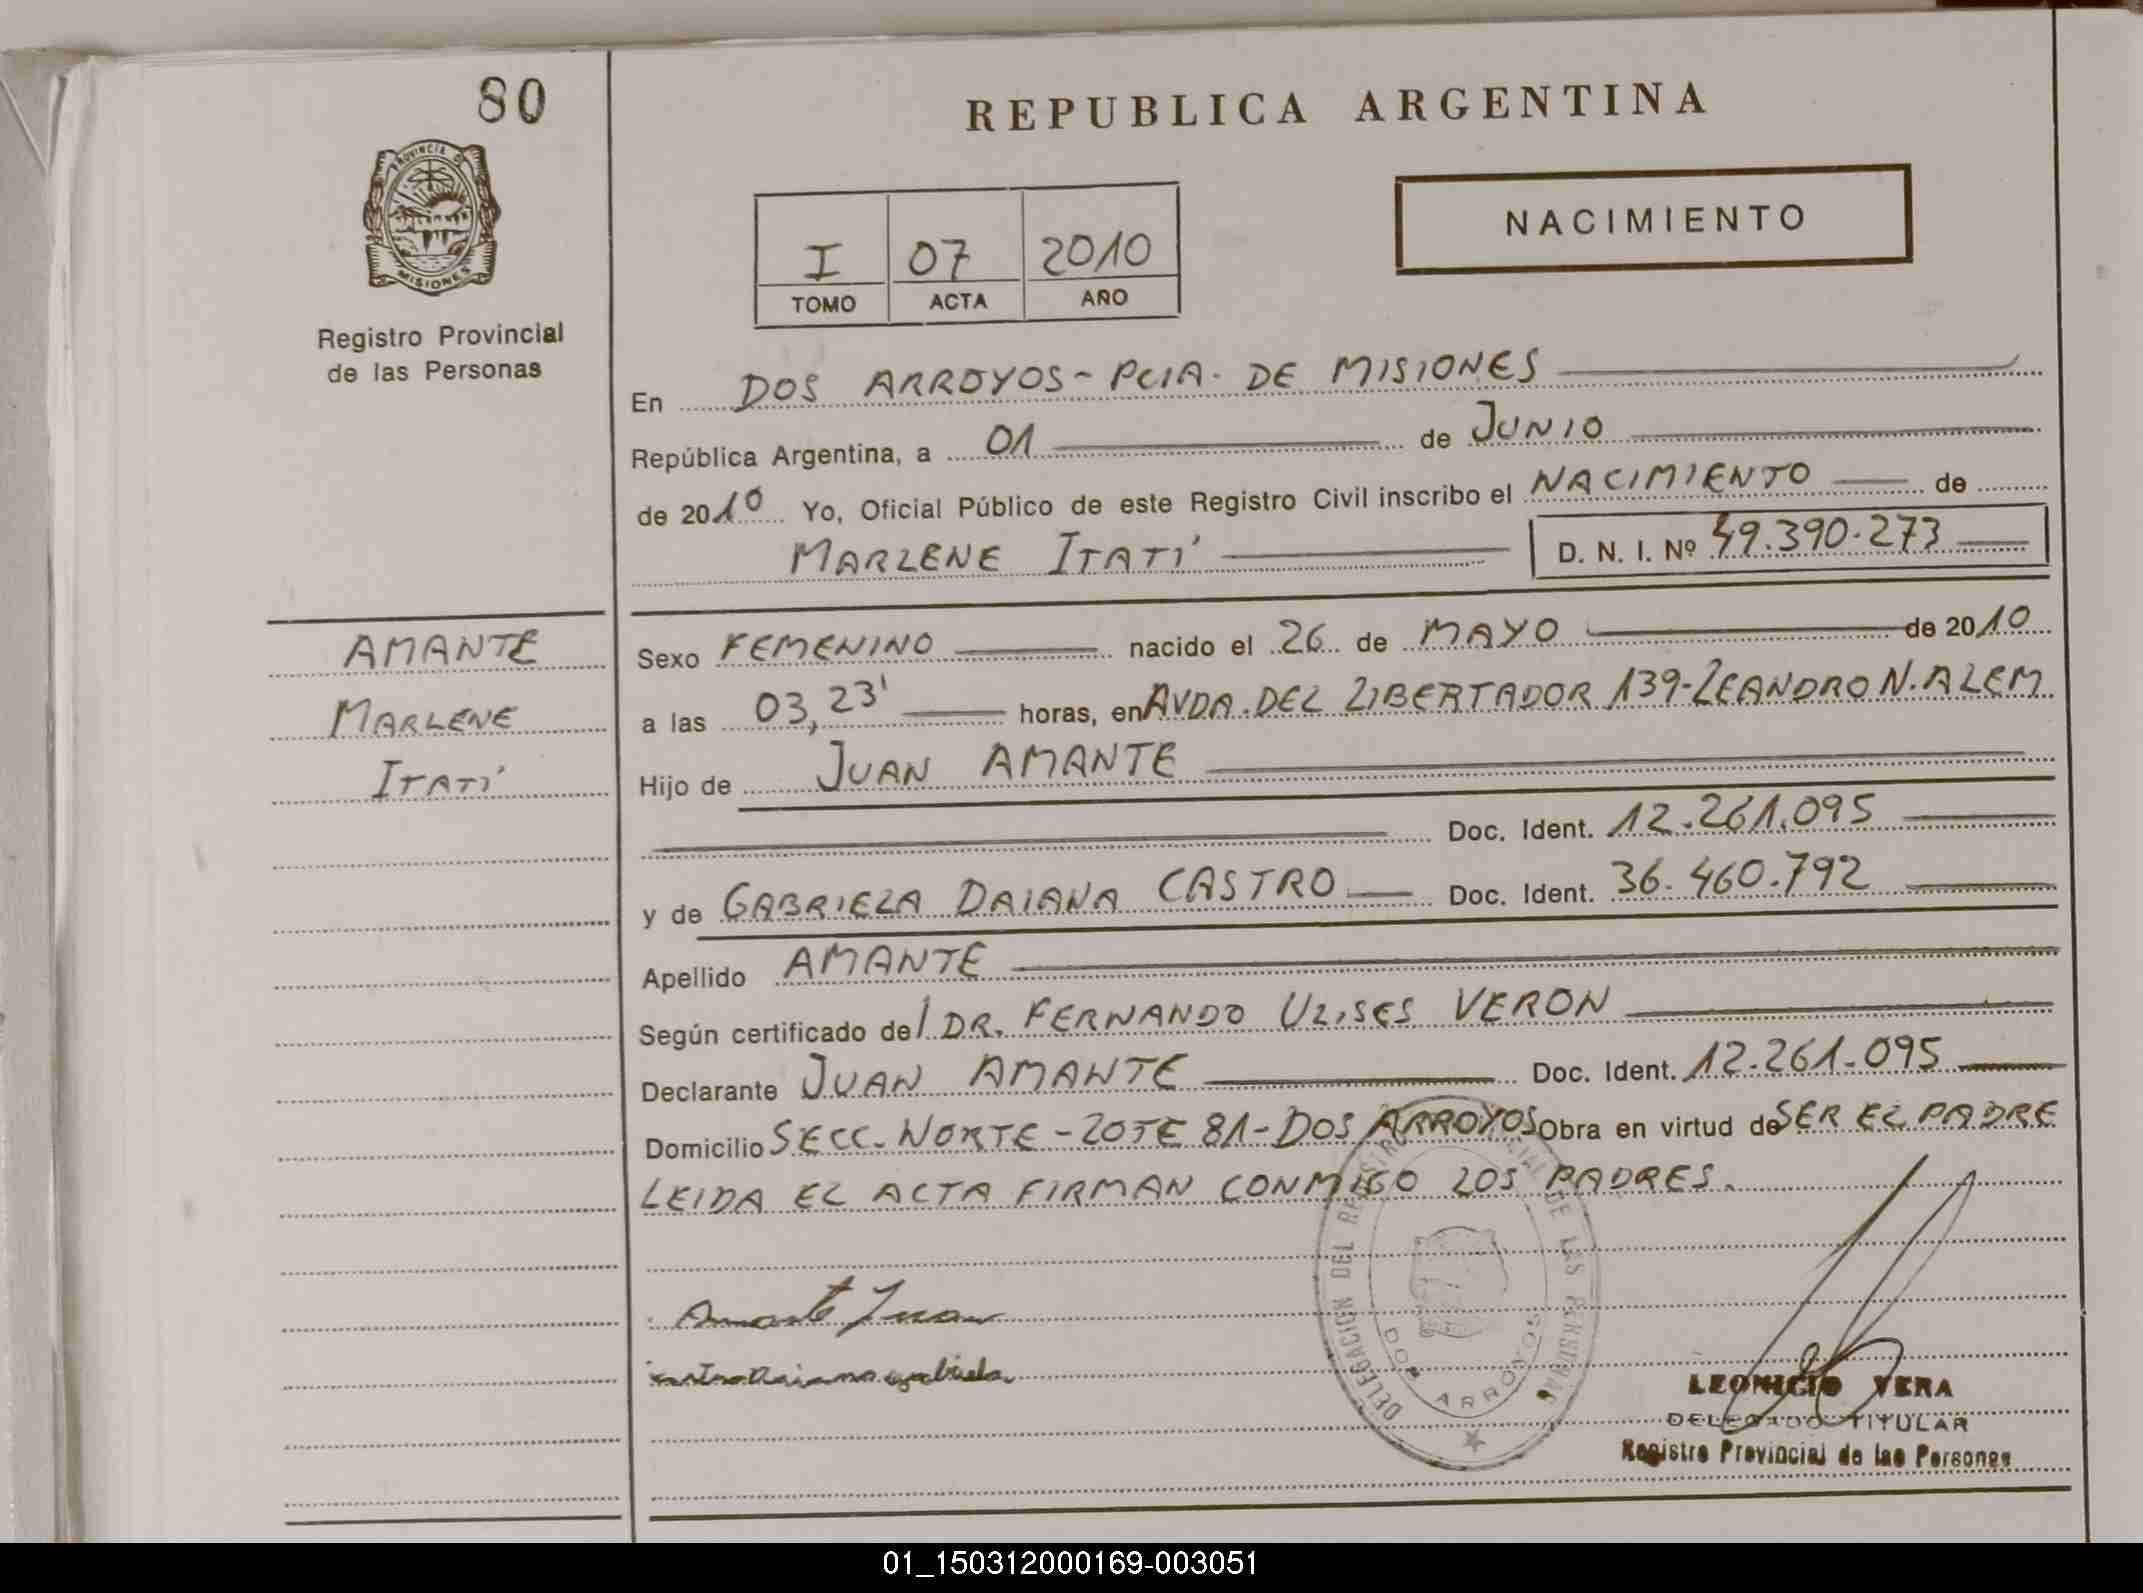 80
REPUBLICA ARGENTINA
PROVINCIA DE
MISIONES
NACIMIENTO
I 07 2010
TOMO ACTA AÑO
Registro Provincial
de las Personas
En DOS ARROYOS - PCIA. DE MISIONES
República Argentina, a 01 de JUNIO
de 2010 Yo, Oficial Público de este Registro Civil inscribo el NACIMIENTO de
MARLENE ITATÍ D. N. I. Nº 49.390.273
AMANTE
MARLENE
ITATÍ
Sexo FEMENINO nacido el 26 de MAYO de 2010
a las 03,23' horas, en AVDA. DEL LIBERTADOR 139-LEANDRO N. ALEM
Hijo de JUAN AMANTE
Doc. Ident. 12.261.095
y de GABRIELA DAIANA CASTRO Doc. Ident. 36.460.792
Apellido AMANTE
Según certificado del DR. FERNANDO ULISES VERON
Declarante JUAN AMANTE Doc. Ident. 12.261.095
Domicilio SECC. NORTE - LOTE 81 - DOS ARROYOS Obra en virtud de SER EL PADRE
LEIDA EL ACTA FIRMAN CONMIGO LOS PADRES.
DELEGACION DEL REGISTRO PROVINCIAL DE LAS PERSONAS
DOS ARROYOS
Amante Juan
castro Daiana gabriela
LEONICIO VERA
DELEGADO TITULAR
Registro Provincial de las Personas
01_150312000169-003051